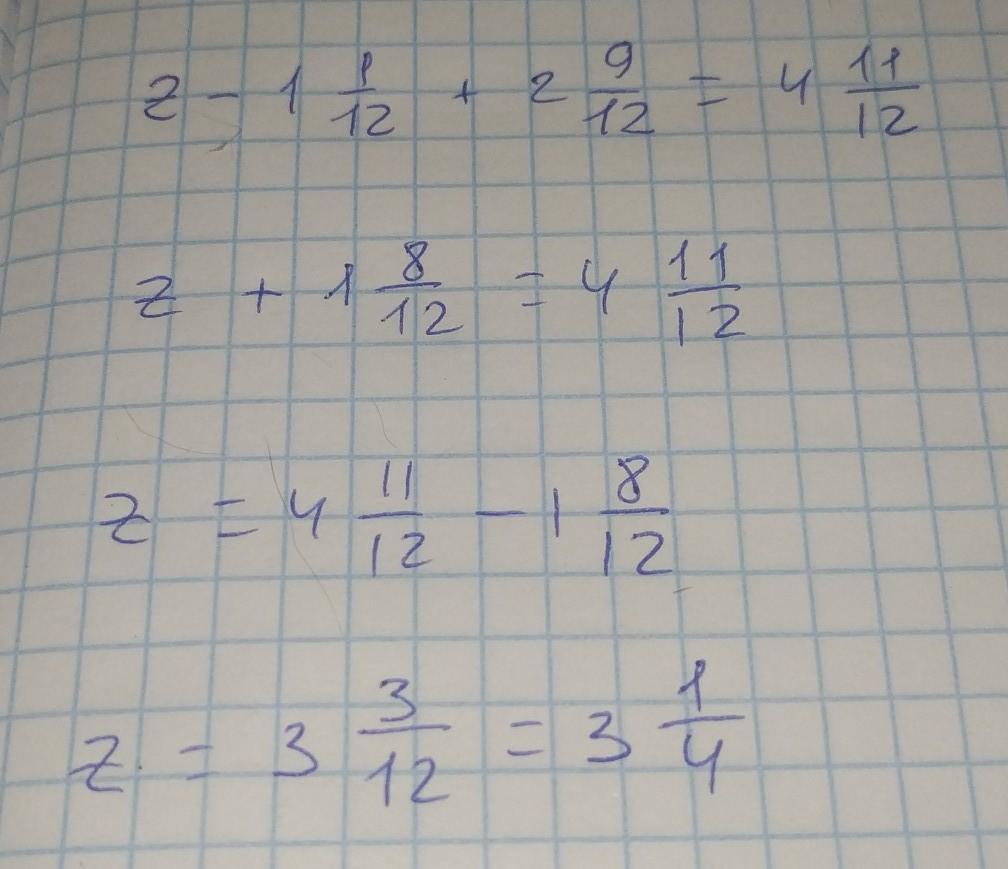 z - 1 1/12 + 2 9/12 = 4 11/12
z + 1 8/12 = 4 11/12
z = 4 11/12 - 1 8/12
z = 3 3/12 = 3 1/4